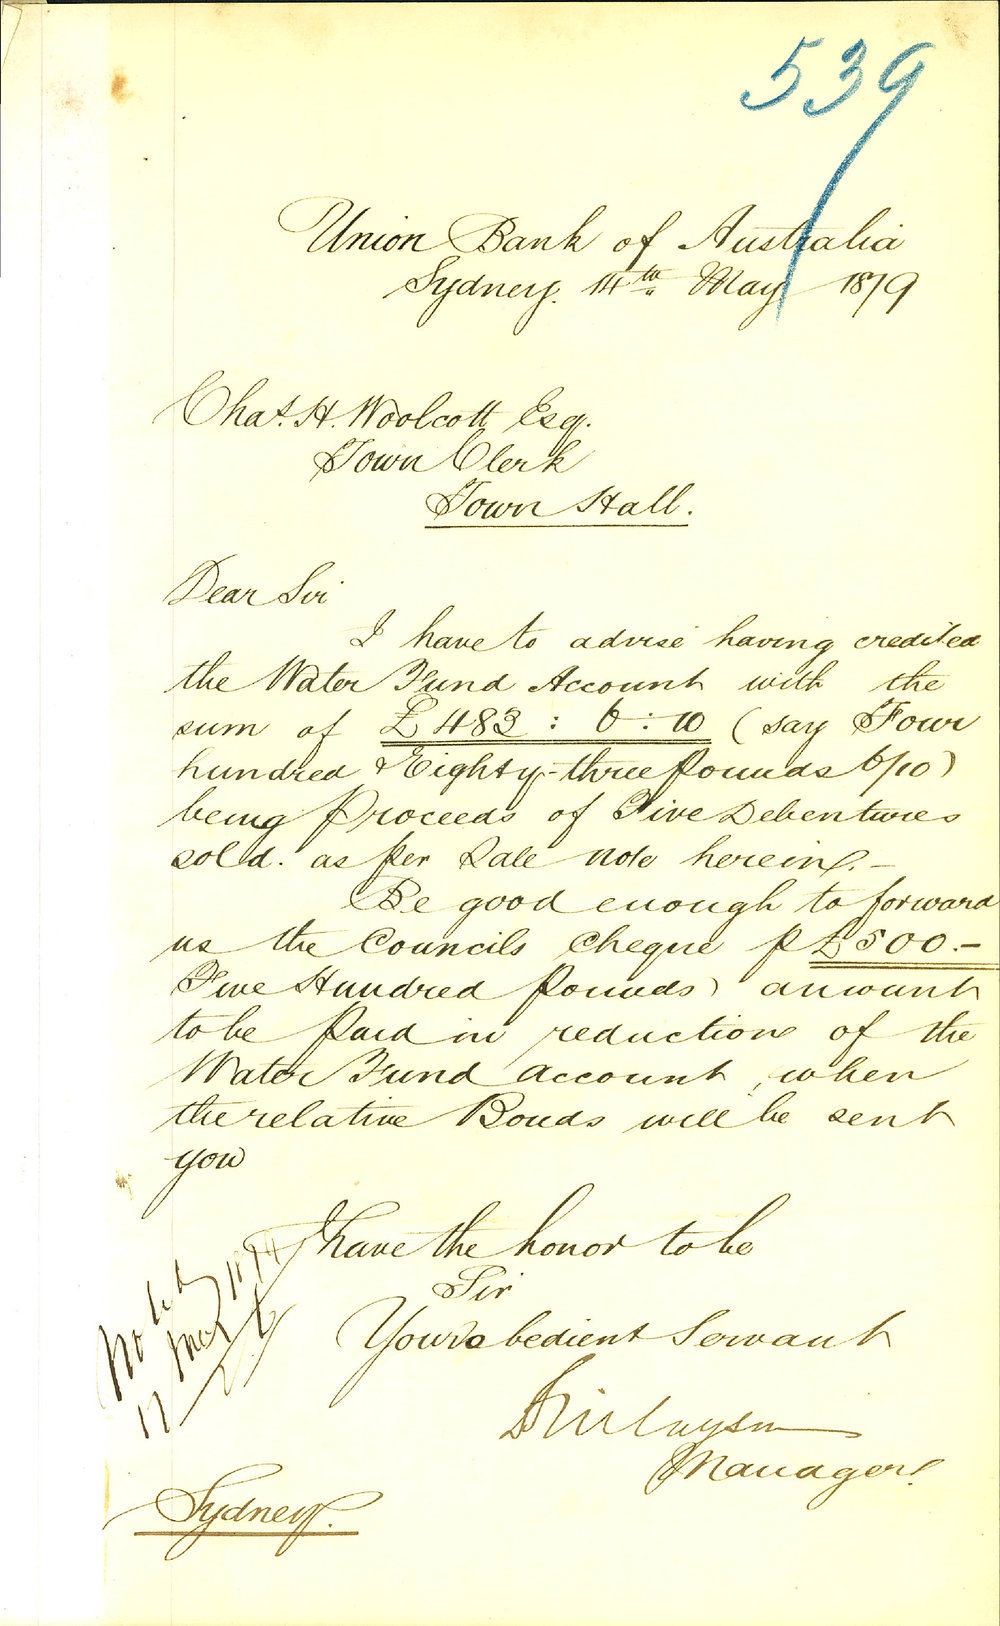 539
Union Bank of Australia
Sydney. 14th May 1879
Chas. H. Woolcott Esq.
Town Clerk
Town Hall.
Dear Sir
I have to advise having credited
the Water Fund Account with the
sum of £483 : 6 : 10 (say Four
hundred & Eighty-three pounds 6/10)
being Proceeds of Five Debentures
sold. as per Sale note herein. -
Be good enough to forward
us the Councils Cheque p £500. -
Five Hundred pounds) amount
to be paid in reduction of the
Water Fund account, when
the relative Bonds will be sent
you
I have the honor to be
Sir
Your obedient Servant
Manager.
Noted
17 May
Sydney.